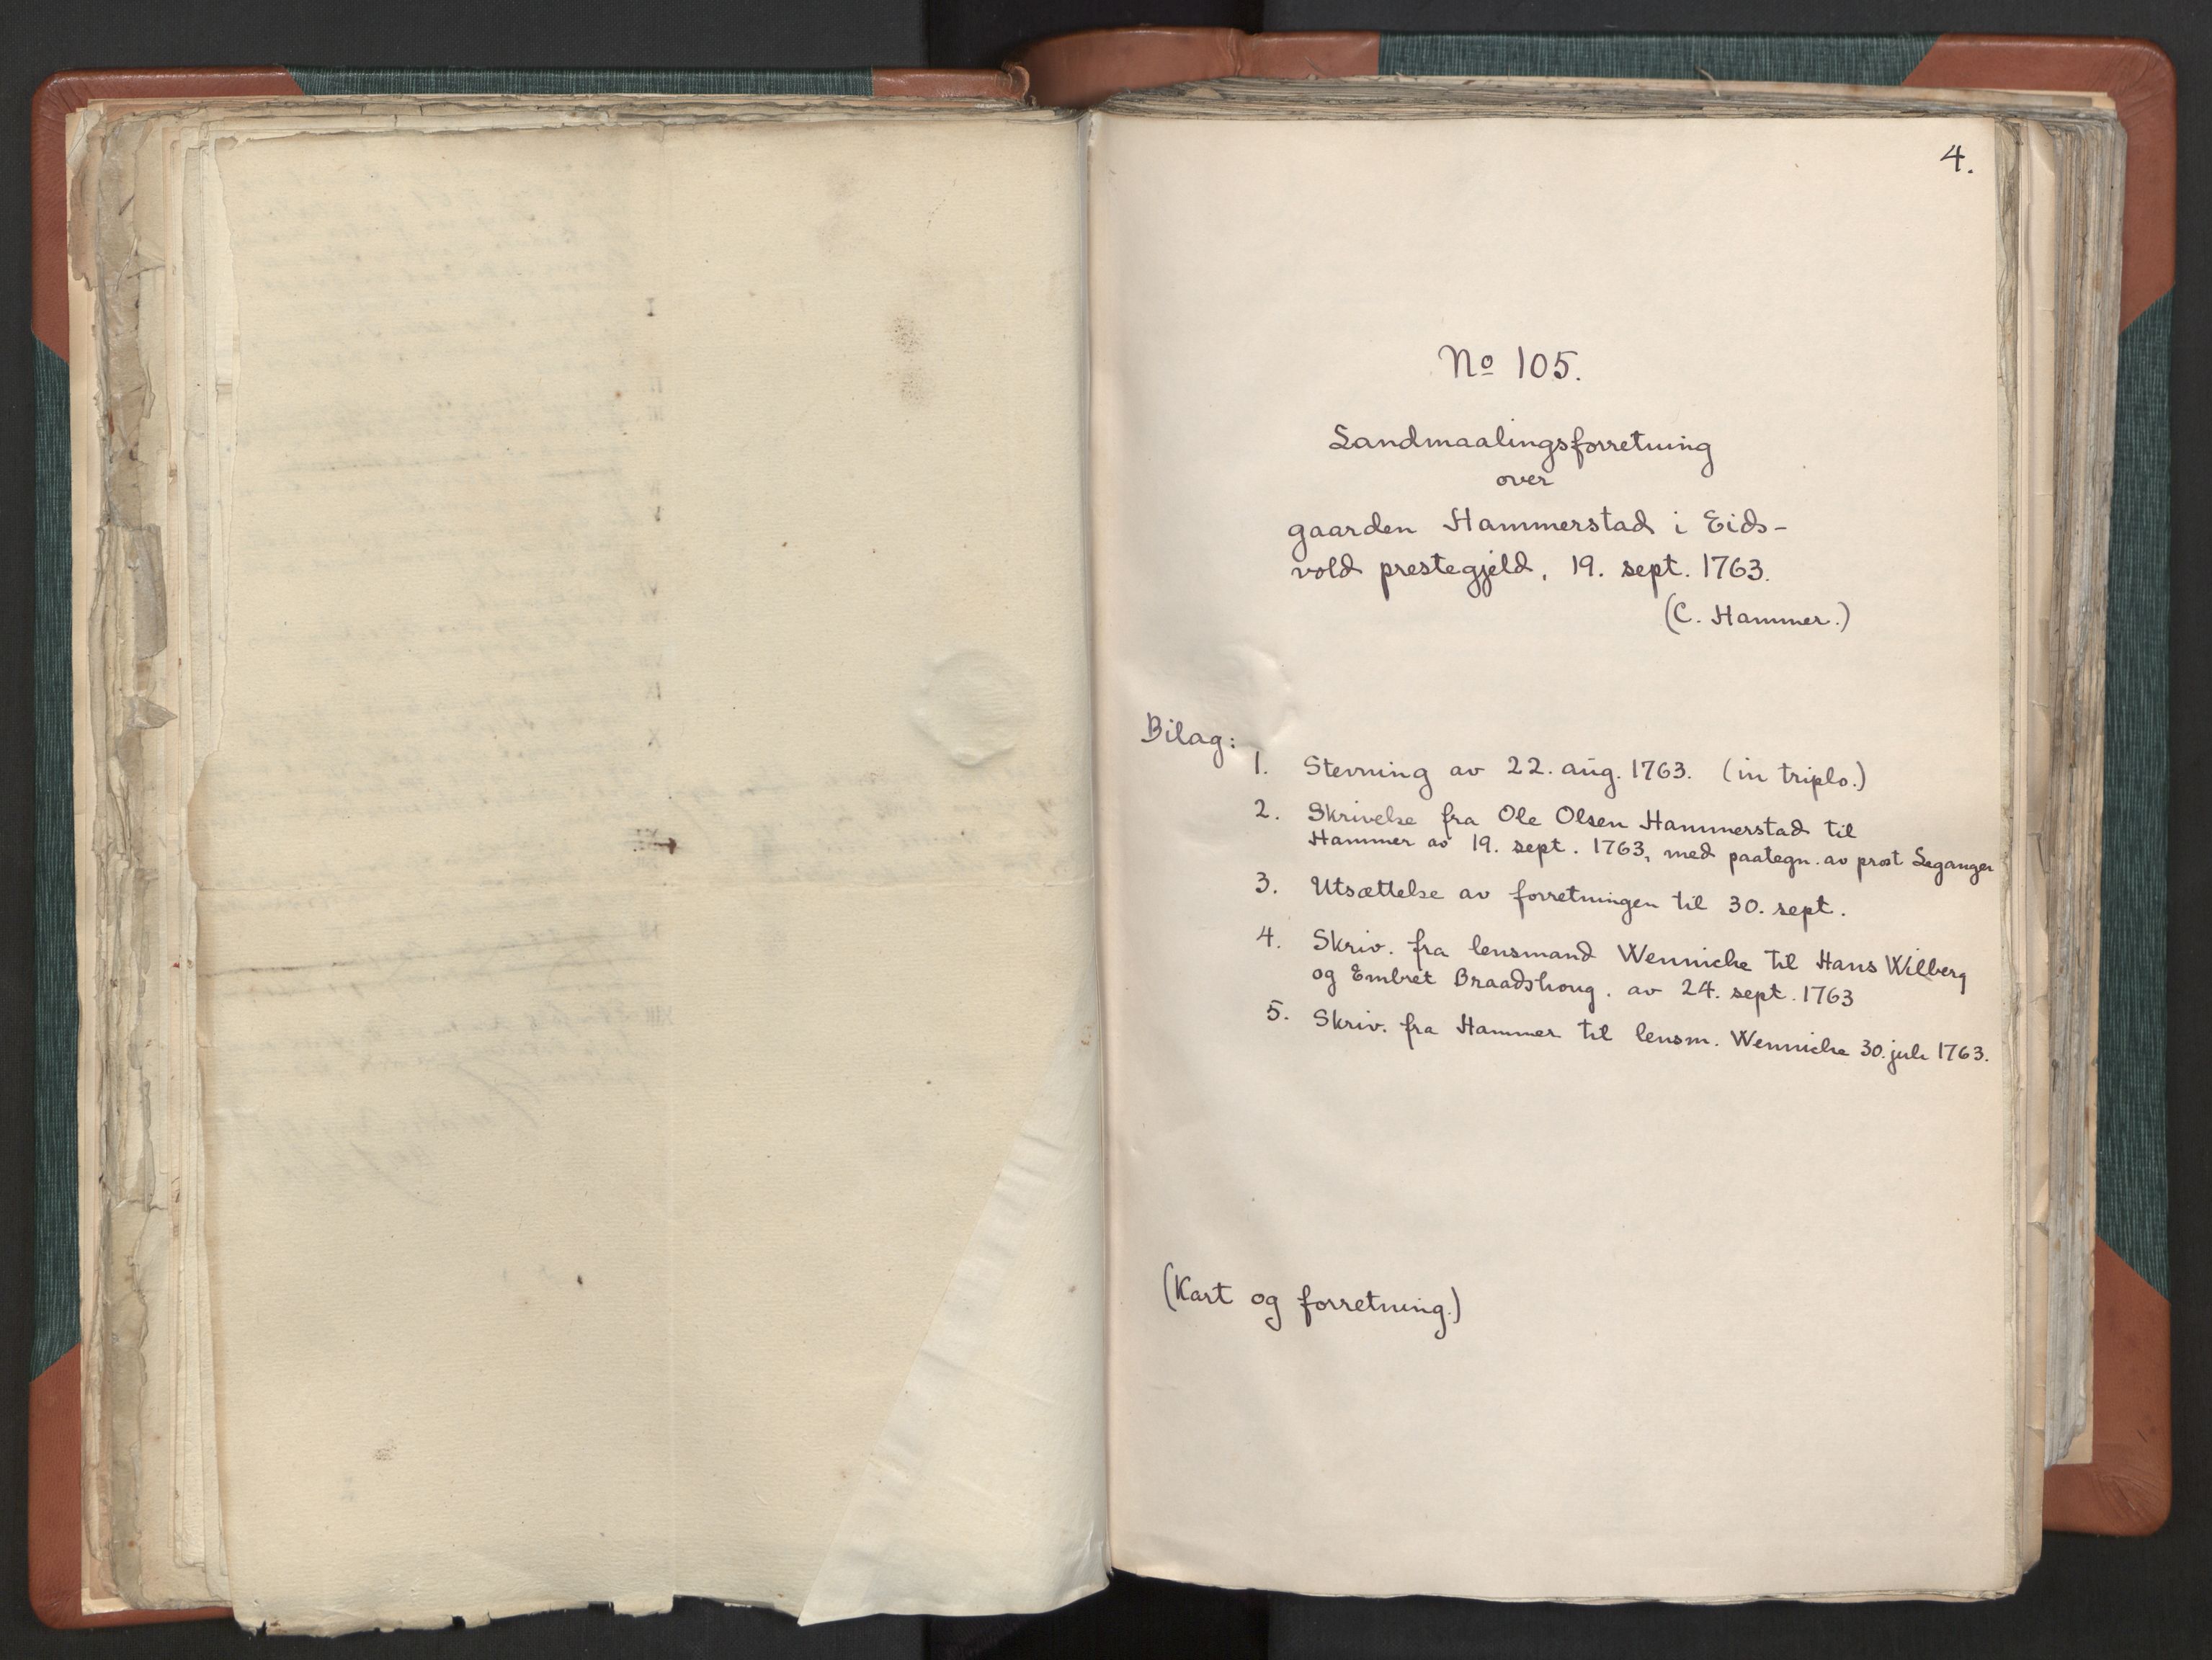 4.
No 105.
Landmaalingsforretning
over
gaarden Hammerstad i Eids-
vold prestegjeld, 19. sept. 1763.
(C. Hammer.)
Bilag:
1. Stevning av 22. aug. 1763. (in triplo.)
2. Skrivelse fra Ole Olsen Hammerstad til
Hammer av 19. sept. 1763, med paategn. av prost Leganger
3. Utsættelse av forretningen til 30. sept.
4. Skriv. fra lensmand Wenniche til Hans Wilberg
og Embret Braadshoug. av 24. sept. 1763
5. Skriv. fra Hammer til lensm. Wenniche 30. juli 1763.
(Kart og forretning.)